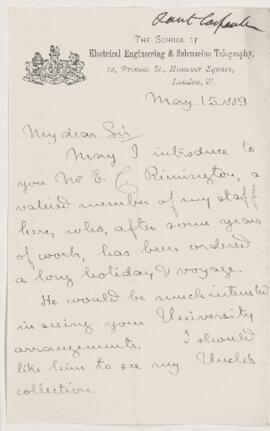 Lant Carpenter
THE SCHOOL OF
Electrical Engineering & Submarine Telegraphy,
12, Princes St., Hanover Square,
London, W.
May 15 1889
My dear Sir
May I introduce to
you Mr E. C. Rimington, a
valued member of my staff
here, who, after some years
of work, has been ordered
a long holiday & voyage.
He would be much interested
in seeing your University
arrangements. I should
like him to see my Uncle's
collection.